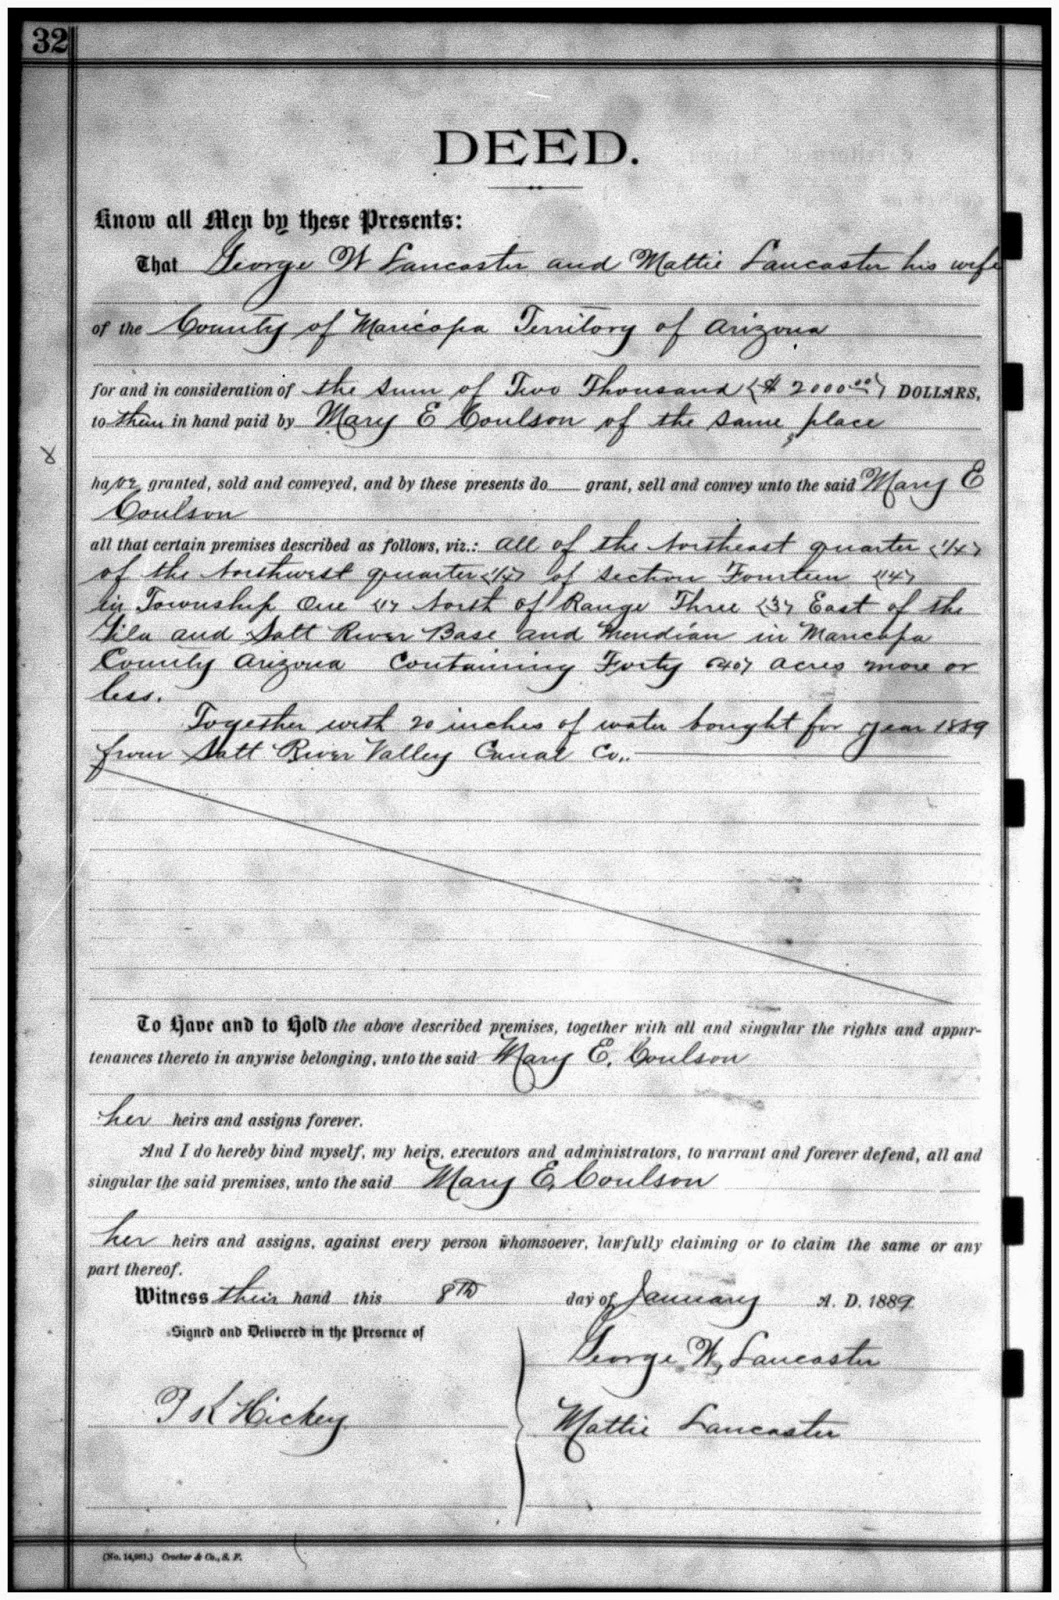 32
DEED.
Know all Men by these Presents:
That George W Lancaster and Mattie Lancaster his wife
of the County of Maricopa Territory of Arizona
for and in consideration of the sum of Two Thousand ($ 2000 00) DOLLARS,
to them in hand paid by Mary E Coulson of the same place
have granted, sold and conveyed, and by these presents do grant, sell and convey unto the said Mary E
Coulson
all that certain premises described as follows, viz.: all of the Northeast quarter (1/4)
of the Northwest quarter (1/4) of section Fourteen (14)
in Township One (1) North of Range Three (3) East of the
Gila and Salt River Base and Meridian in Maricopa
County Arizona Containing Forty (40) acres more or
less.
Together with 20 inches of water bought for year 1889
from Salt River Valley Canal Co.
To Have and to Hold the above described premises, together with all and singular the rights and appur-
tenances thereto in anywise belonging, unto the said Mary E. Coulson
her heirs and assigns forever.
And I do hereby bind myself, my heirs, executors and administrators, to warrant and forever defend, all and
singular the said premises, unto the said Mary E. Coulson
her heirs and assigns, against every person whomsoever, lawfully claiming or to claim the same or any
part thereof.
Witness their hand this 8th day of January A. D. 1889.
Signed and Delivered in the Presence of
George W. Lancaster
Hickey
Mattie Lancaster
(No. 14,981.) Crocker & Co., S. F.